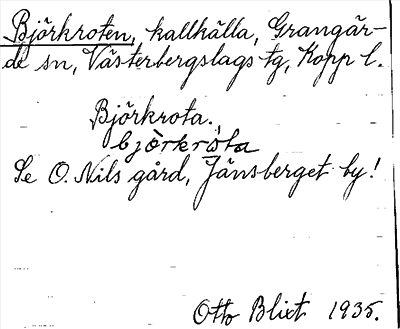 Björkroten, kallkälla, Grangär-
de sn, Västerbergslags tg, Kopp l.
Björkrota.
bjö̀rkròta
Se O. Nils gård, Jänsberget by!
Otto Blixt 1935.